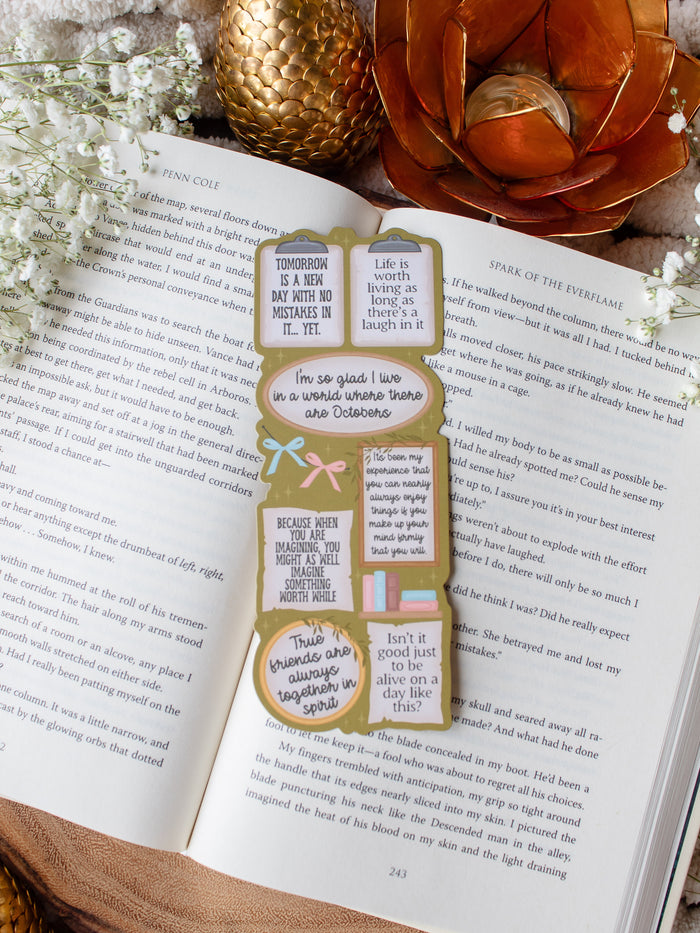 PENN COLE
map, several floors down
was marked with a bright red
hidden behind this door was
staircase that would end at an under-
along the water, I would find a small
the Crown's personal conveyance when
from the Guardians was to search the boat
might be able to hide unseen. Vance had
he needed this information, only that it was nec-
being coordinated by the rebel cell in Arboros.
at best to get there, get what I needed, and get back.
an impossible ask, but it would have to be enough.
the map away and set off at a jog in the general direc-
palace's rear, aiming for a stairwell that had been marked
passage. If I could get into the unguarded corridors
staff, I stood a chance at—
hall.
heavy and coming toward me.
or hear anything except the drumbeat of left, right,
. . . Somehow, I knew.
within me hummed at the roll of his tremen-
the corridor. The hair along my arms stood
reach toward him.
search of a room or an alcove, any place I
smooth walls stretched on either side.
Had I really been patting myself on the
one column. It was a little narrow, and
cast by the glowing orbs that dotted
2
TOMORROW
IS A NEW
DAY WITH NO
MISTAKES IN
IT... YET.
Life is
worth
living as
long as
there's a
laugh in it
I'm so glad I live
in a world where there
are Octobers
It's been my
experience that
you can nearly
always enjoy
things if you
make up your
mind firmly
that you will.
BECAUSE WHEN
YOU ARE
IMAGINING, YOU
MIGHT AS WELL
IMAGINE
SOMETHING
WORTH WHILE
True
friends are
always
together in
spirit
Isn't it
good just
to be
alive on a
day like
this?
SPARK OF THE EVERFLAME
If he walked beyond the column, there would be no way
myself from view—but it was all I had. I tucked behind
moved closer, his pace strikingly slow. He seemed
get where he was going, as if he already knew he had
like a mouse in a cage.
I willed my body to be as small as possible be-
Had he already spotted me? Could he sense my
could sense his?
you're up to, I assure you it's in your best interest
weren't about to explode with the effort
actually have laughed.
before I do, there will only be so much I
did he think I was? Did he really expect
other. She betrayed me and lost my
mistakes."
my skull and seared away all ra-
he made? And what had he done
to the blade concealed in my boot. He'd been a
fool to let me keep it—a fool who was about to regret all his choices.
My fingers trembled with anticipation, my grip so tight around
the handle that its edges nearly sliced into my skin. I pictured the
blade puncturing his neck like the Descended man in the alley,
imagined the heat of his blood on my skin and the light draining
243